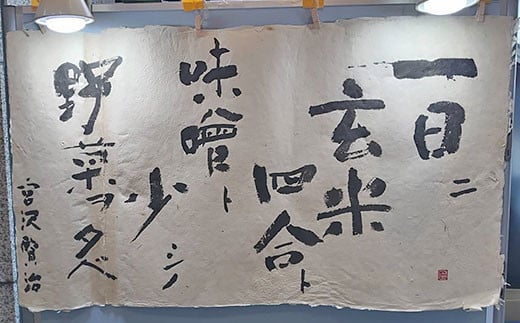 一日ニ
玄米
四合ト
味噌ト
少シノ
野菜ヲタベ
宮沢賢治